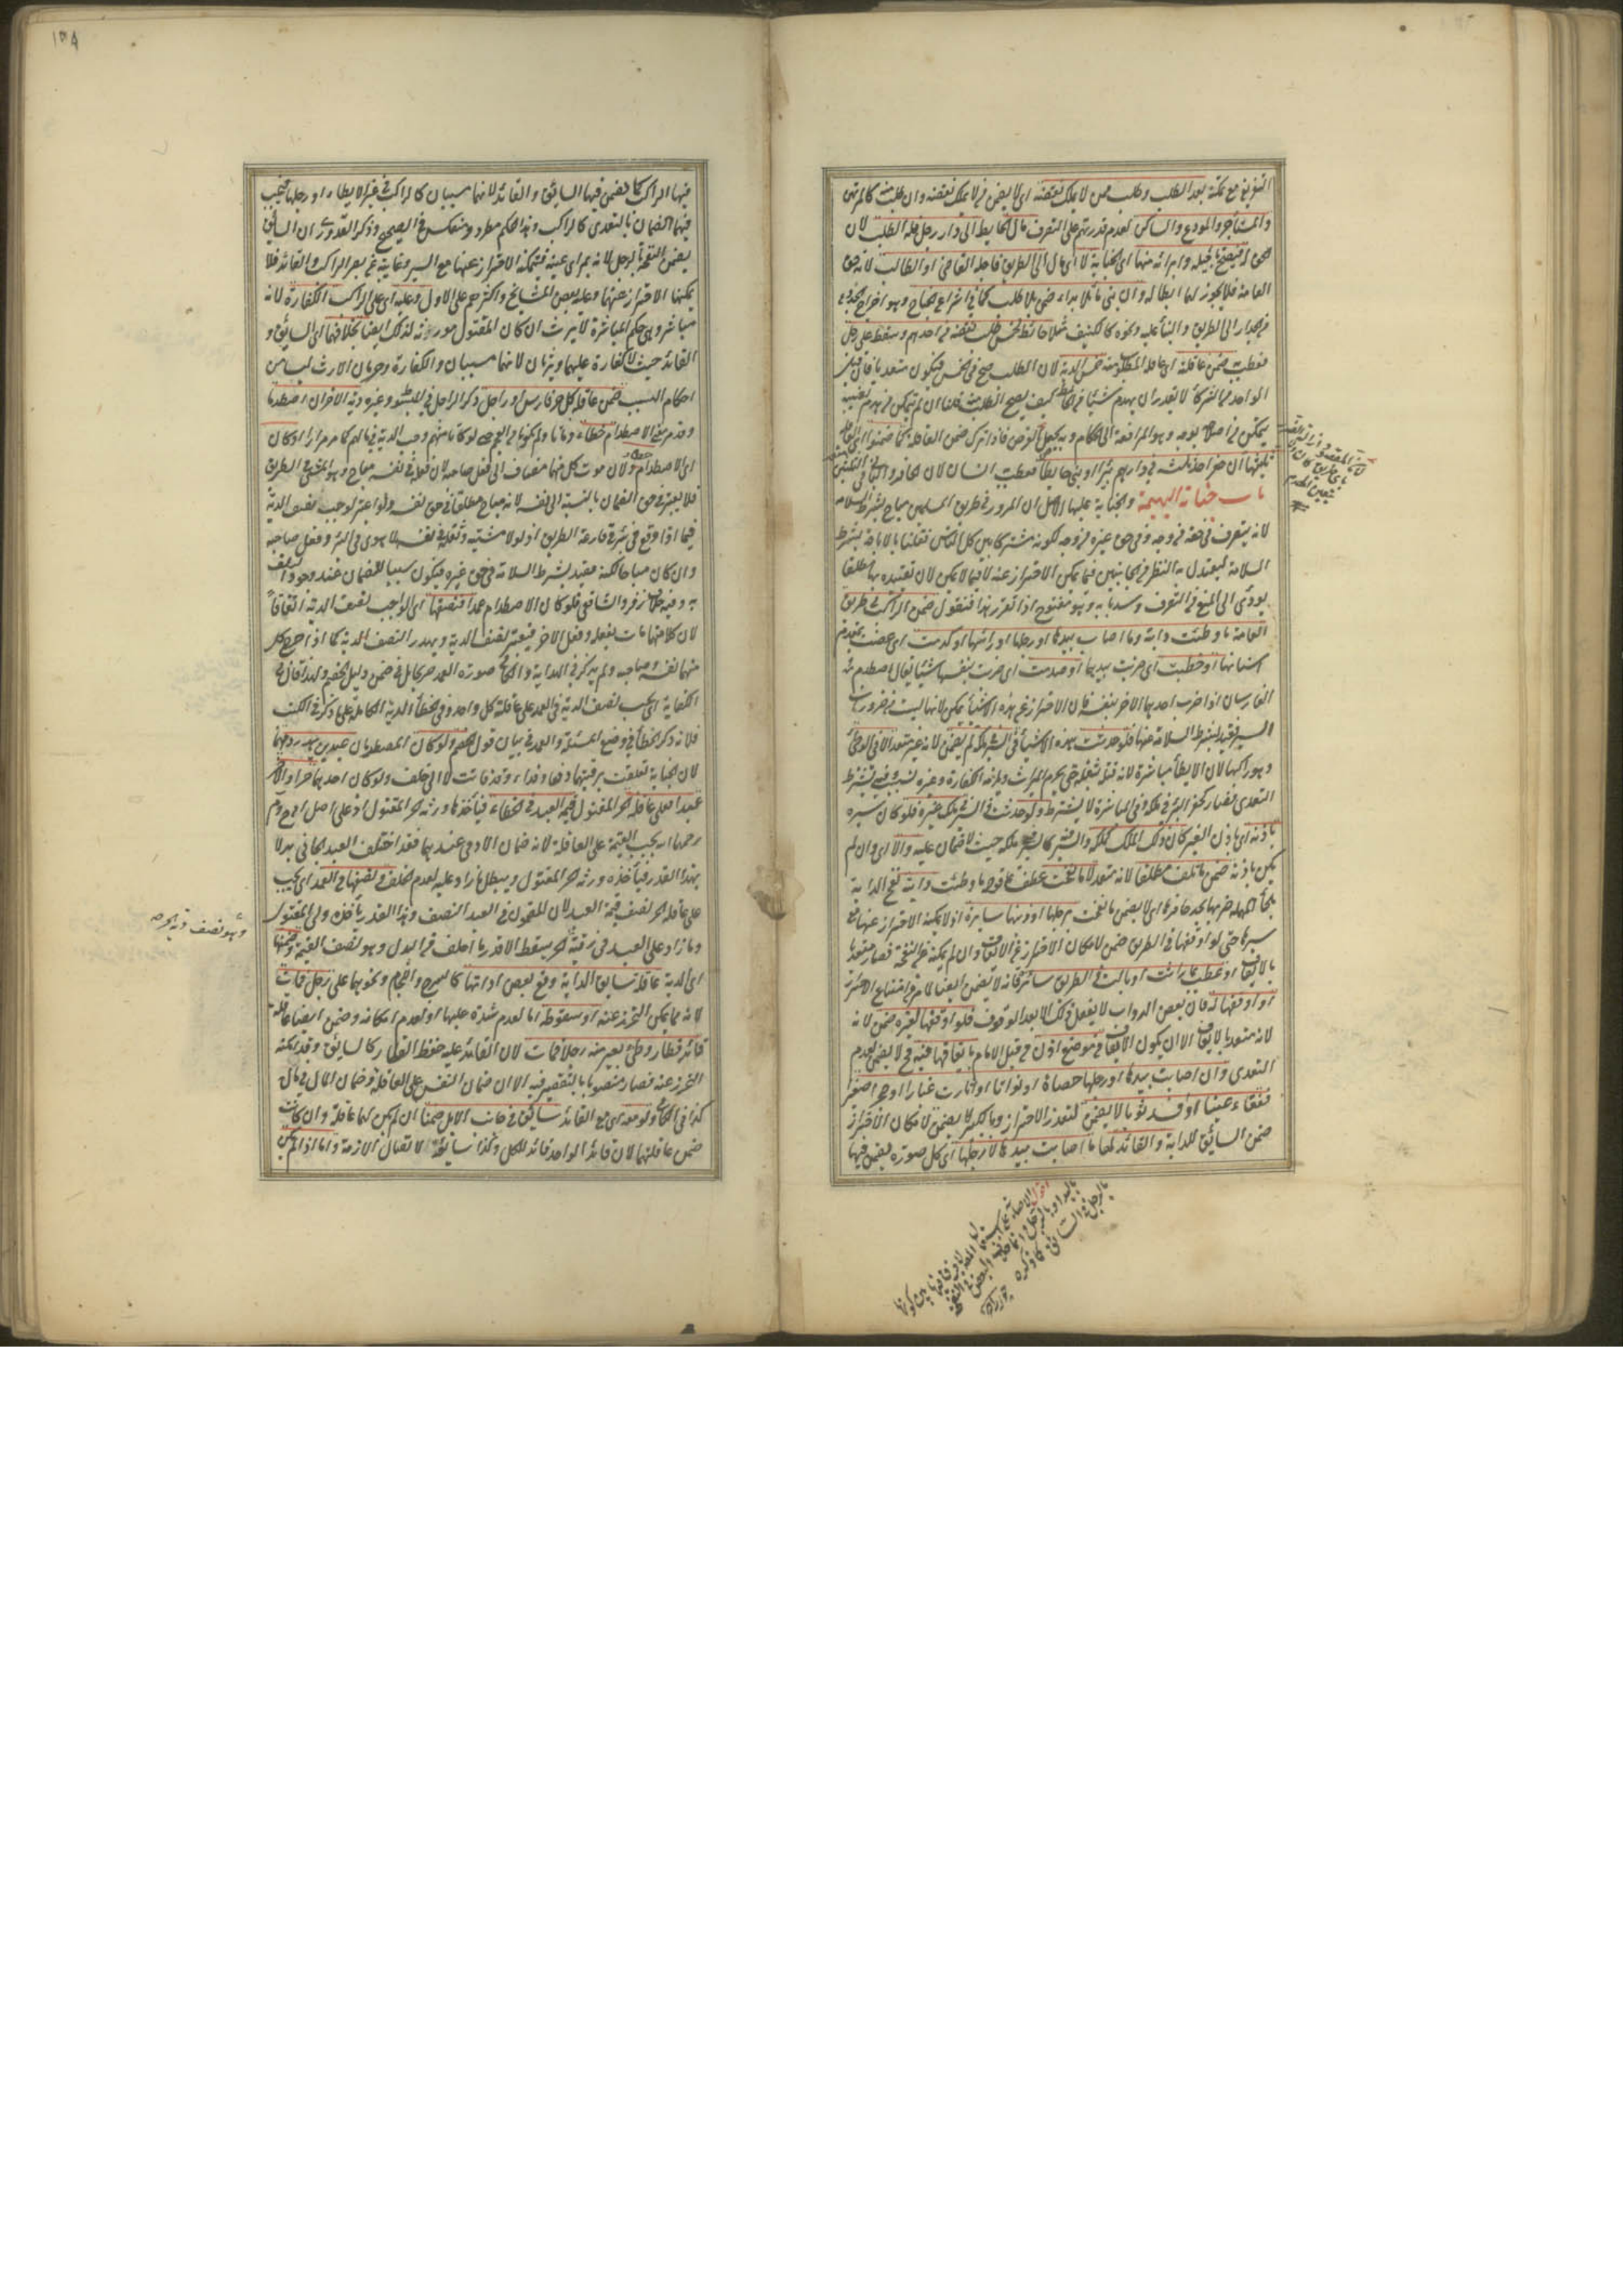 التفريغ مع تمكنه بعد الطلب وطلب ممن لا يملك نقضه اى لا يضمن من لا يملك نقضه وان طلب منه كالمرتهن
والمستأجر والمودع والساكن لعدم قدرتهم على التصرف مال الحايط الى دار رجل فله الطلب لان
الحق له فيصح تأجيله وابرائه منها اى الجناية لا اى مال الى الطريق فاجله القاضى او الطالب لانه حق
العامة فلا يجوز لهما ابطاله وان بنى مائلا ابتداء ضمن بلا طلب كما فى اشراع الجناح وهو اخراج الجذوع
من الجدار الى الطريق والبناء عليه ونحوه كالكنيف حائط لخمسة طلب نقضه من احدهم وسقط على رجل
فعطب ضمن عاقلته اى عاقلة المطلوب منه خمس الدية لان الطلب صح فى الخمس فيكون متعديا فان قيل
الواحد من الشركاء لا يقدر ان يهدم شيئا من الحائط كيف يصح الطلب منه قلنا ان لم يتمكن من هدم نصيبه
يتمكن من اصلاحه بوجه وهو المرافعة الى الحكام وبه يحصل الغرض فاذا ترك ضمن العاقلة كما ضمنوا اى العاقلة
ثلثيها ان حفر احد ثلثة فى دارهم بئرا او بنى حايطا فعطب انسان لان الحافر والبانى فى الثلثين
باب جناية البهيمة والجناية عليها الاصل ان المرور فى طريق المسلمين مباح بشرط السلامة
لانه يتصرف فى حقه من وجه وفى حق غيره من وجه لكونه مشتركا بين كل الناس فقلنا بالاباحة بشرط
السلامة ليعتدل به النظر من الجانبين فيما يمكن الاحتراز عنه لا فيما لا يمكن لان تقييده بها مطلقا
يؤدى الى المنع من التصرف وسد بابه وهو مفتوح اذا تقرر هذا فنقول ضمن الراكب فى طريق
العامة ما وطئت دابته وما اصابت بيدها او رجلها او رأسها او كدمت اى عضت بمقدم
اسنانها او خبطت اى ضربت بيدها او صدمت اى ضربت بنفسها شيئا يقال اصطدم
الفارسان اذا ضرب احدهما الآخر بنفسه فان الاحتراز عن هذه الاشياء ممكن لانها ليست من ضرورات
السير فقيد بشرط السلامة عنها فلو حدثت هذه الاشياء فى السير بملكه لم يضمن لانه غير متعد الا فى الوطئ
وهو راكبها لان الايطاء مباشرة لانه قتل بثقله حتى يحرم الميراث ويلزمه الكفارة وغيره تسبيب وفيه يشترط
التعدى فصار كحفر البئر فى ملكه وفى المباشرة لا يشترط ولو حدثت فى السير بملك غيره فلو كان سيره
باذنه اى باذن الغير كان ذلك الملك كملكه والسير كالسير بملكه حيث لا ضمان عليه والا اى وان لم
يكن باذنه ضمن ما تلف مطلقا لانه متعد لا ما نفحت عطف على قوله ما وطئت دابته نفح الدابة
بالحاء المهملة ضربها بحد حافرها اى لا يضمن ما نفحت برجلها او ذنبها سايرة اذ لا يمكنه الاحتراز عنها مع
سيرها حتى لو اوقفها فى الطريق ضمن لامكان الاحتراز عن الايقاف وان لم يمكنه عن النفحة فصار متعديا
بالايقاف او عطب بما راثت او بالت فى الطريق سائرة فانه لا يضمن ايضا لامر من امتناع الاحتراز
او اوقفها له فان بعض الدواب لا يفعل ذلك الا بعد الوقوف فلو اوقفها لغيره ضمن لانه
لانه متعد بالايقاف الا ان يكون الايقاف فى موضع اذن من قبل الامام بايقافها فيه فح لا يضمن لعدم
التعدى وان اصابت بيدها او رجلها حصاة او نواة او اثارت غبارا او حجرا صغيرا
ففقاء عينا او افسد ثوبا لا يضمن لتعذر الاحتراز وبالكبير يضمن لامكان الاحتراز
ضمن السائق للدابة والقائد لها ما اصابت بيدها لا رجلها اى كل صورة يضمن فيها
فيها الراكب كما يضمن فيها السايق والقائد لانهما مسببان كالراكب فى غير الايطاء او رجلها فيجب
فيهما الضمان بالتعدى كالراكب وهذا الحكم مطرد ومنعكس فى الصحيح وذكر القدورى ان السايق
يضمن النفحة بالرجل لانه بمرأى عينه فيمكنه الاحتراز عنها مع السير وغايبة عن بصر الراكب والقائد فلا
يمكنهما الاحتراز عنها وعليه بعض المشايخ واكثرهم على الاول وعليه اى على الراكب الكفارة لانه
مباشر وهى حكم المباشرة لا يرث ان كان المقتول مورثه لذلك ايضا بخلافهما اى السايق و
القائد حيث لا كفارة عليهما ويرثان لانهما مسببان والكفارة وحرمان الارث ليسا من
احكام التسبيب ضمن عاقلة كل حر فارس او راجل ذكر الراجل فى المبسوط وغيره دية الآخر ان اصطدما
وقدم معنى الاصطدام خطاء وماتا ولم يكونا من العجم حتى لو كانا منهم وجب الدية فى مالهم كما مر مرارا او كان
اى الاصطدام ولان موت كل منهما مضاف الى فعل صاحبه لان فعله فى نفسه مباح وهو المشى فى الطريق
فلا يعتبر فى حق الضمان بالنسبة الى نفسه لانه مباح مطلقا فى حق نفسه ولو اعتبر لوجب نصف الدية
فيما اذا وقع فى بئر فى قارعة الطريق اذ لولا مشيته وثقله فى نفسه لما هوى فى البئر وفعل صاحبه
وان كان مباحا لكنه مقيد بشرط السلامة فى حق غيره فيكون سببا للضمان عند وجود التلف
به وفيه خلاف زفر والشافعى فلو كان الاصطدام عمدا فنصفها اى الواجب نصف الدية اتفاقا
لان كلا منهما مات بفعله وفعل الآخر فيعتبر نصف الدية ويهدر النصف الدية كما اذا جرح كل
منهما نفسه وصاحبه ولم يذكر فى الهداية والكافى صورة العمد صريحا بل فى ضمن دليل الخصم ولهذا قال فى
الكفاية اى يجب نصف الدية فى العمد على عاقلة كل واحد وفى الخطأ الدية الكاملة على ما ذكر فى الكتب
فلانه ذكر الخطأ فى وضع المسئلة والعمد فى بيان قول الخصم ولو كان المصطدمان عبدين يهدر دمهما
لان الجناية تعلقت برقبتهما دفعا وفداء وقد فاتت لا الى خلف ولو كان احدهما حرا والآخر
عبدا فعلى عاقلة الحر المقتول قيمة العبد فى الخطاء فيأخذها ورثة الحر المقتول اذ على اصل ابى ح وم
رحمهما الله يجب القيمة على العاقلة لانه ضمان الآدمى عندهما فقد اخلف العبد الجانى بدلا
بهذا القدر فيأخذه ورثة الحر المقتول ويبطل ما زاد عليه لعدم الخلف ونصفها فى العمد اى يجب
على عاقلة الحر نصف قيمة العبد لان المضمون فى العبد النصف وهذا القدر يأخذه ولى المقتول
وما زاد على العبد فى رقبته الحر يسقط الا قدر ما اخلف من البدل وهو نصف القيمة وضمنها
اى الدية عاقلة سايق الدابة وقع بعض اداتها كالسرج واللجام ونحوهما على رجل فمات
لانه مما يمكن التحرز عنه اذ سقوطه اما لعدم شده عليها او لعدم احكامه وضمن ايضا عاقلة
قائد قطار وطئ بعير منه رجلا فمات لان القائد عليه حفظ القطار كالسايق وقد امكنه
التحرز عنه فصار متعديا بالتقصير فيه الا ان ضمان النفس على العاقلة وضمان المال فى ماله
كذا فى الكافى ولو معه اى مع القائد سايق فى جانب الابل ضمنا ان لم يكن لهما عاقلة وان كانت
ضمن عاقلتهما لان قائد الواحد قائد للكل وكذا سايقه لاتصال الازمة واما اذا لم يكن
وهو نصف دية الحر